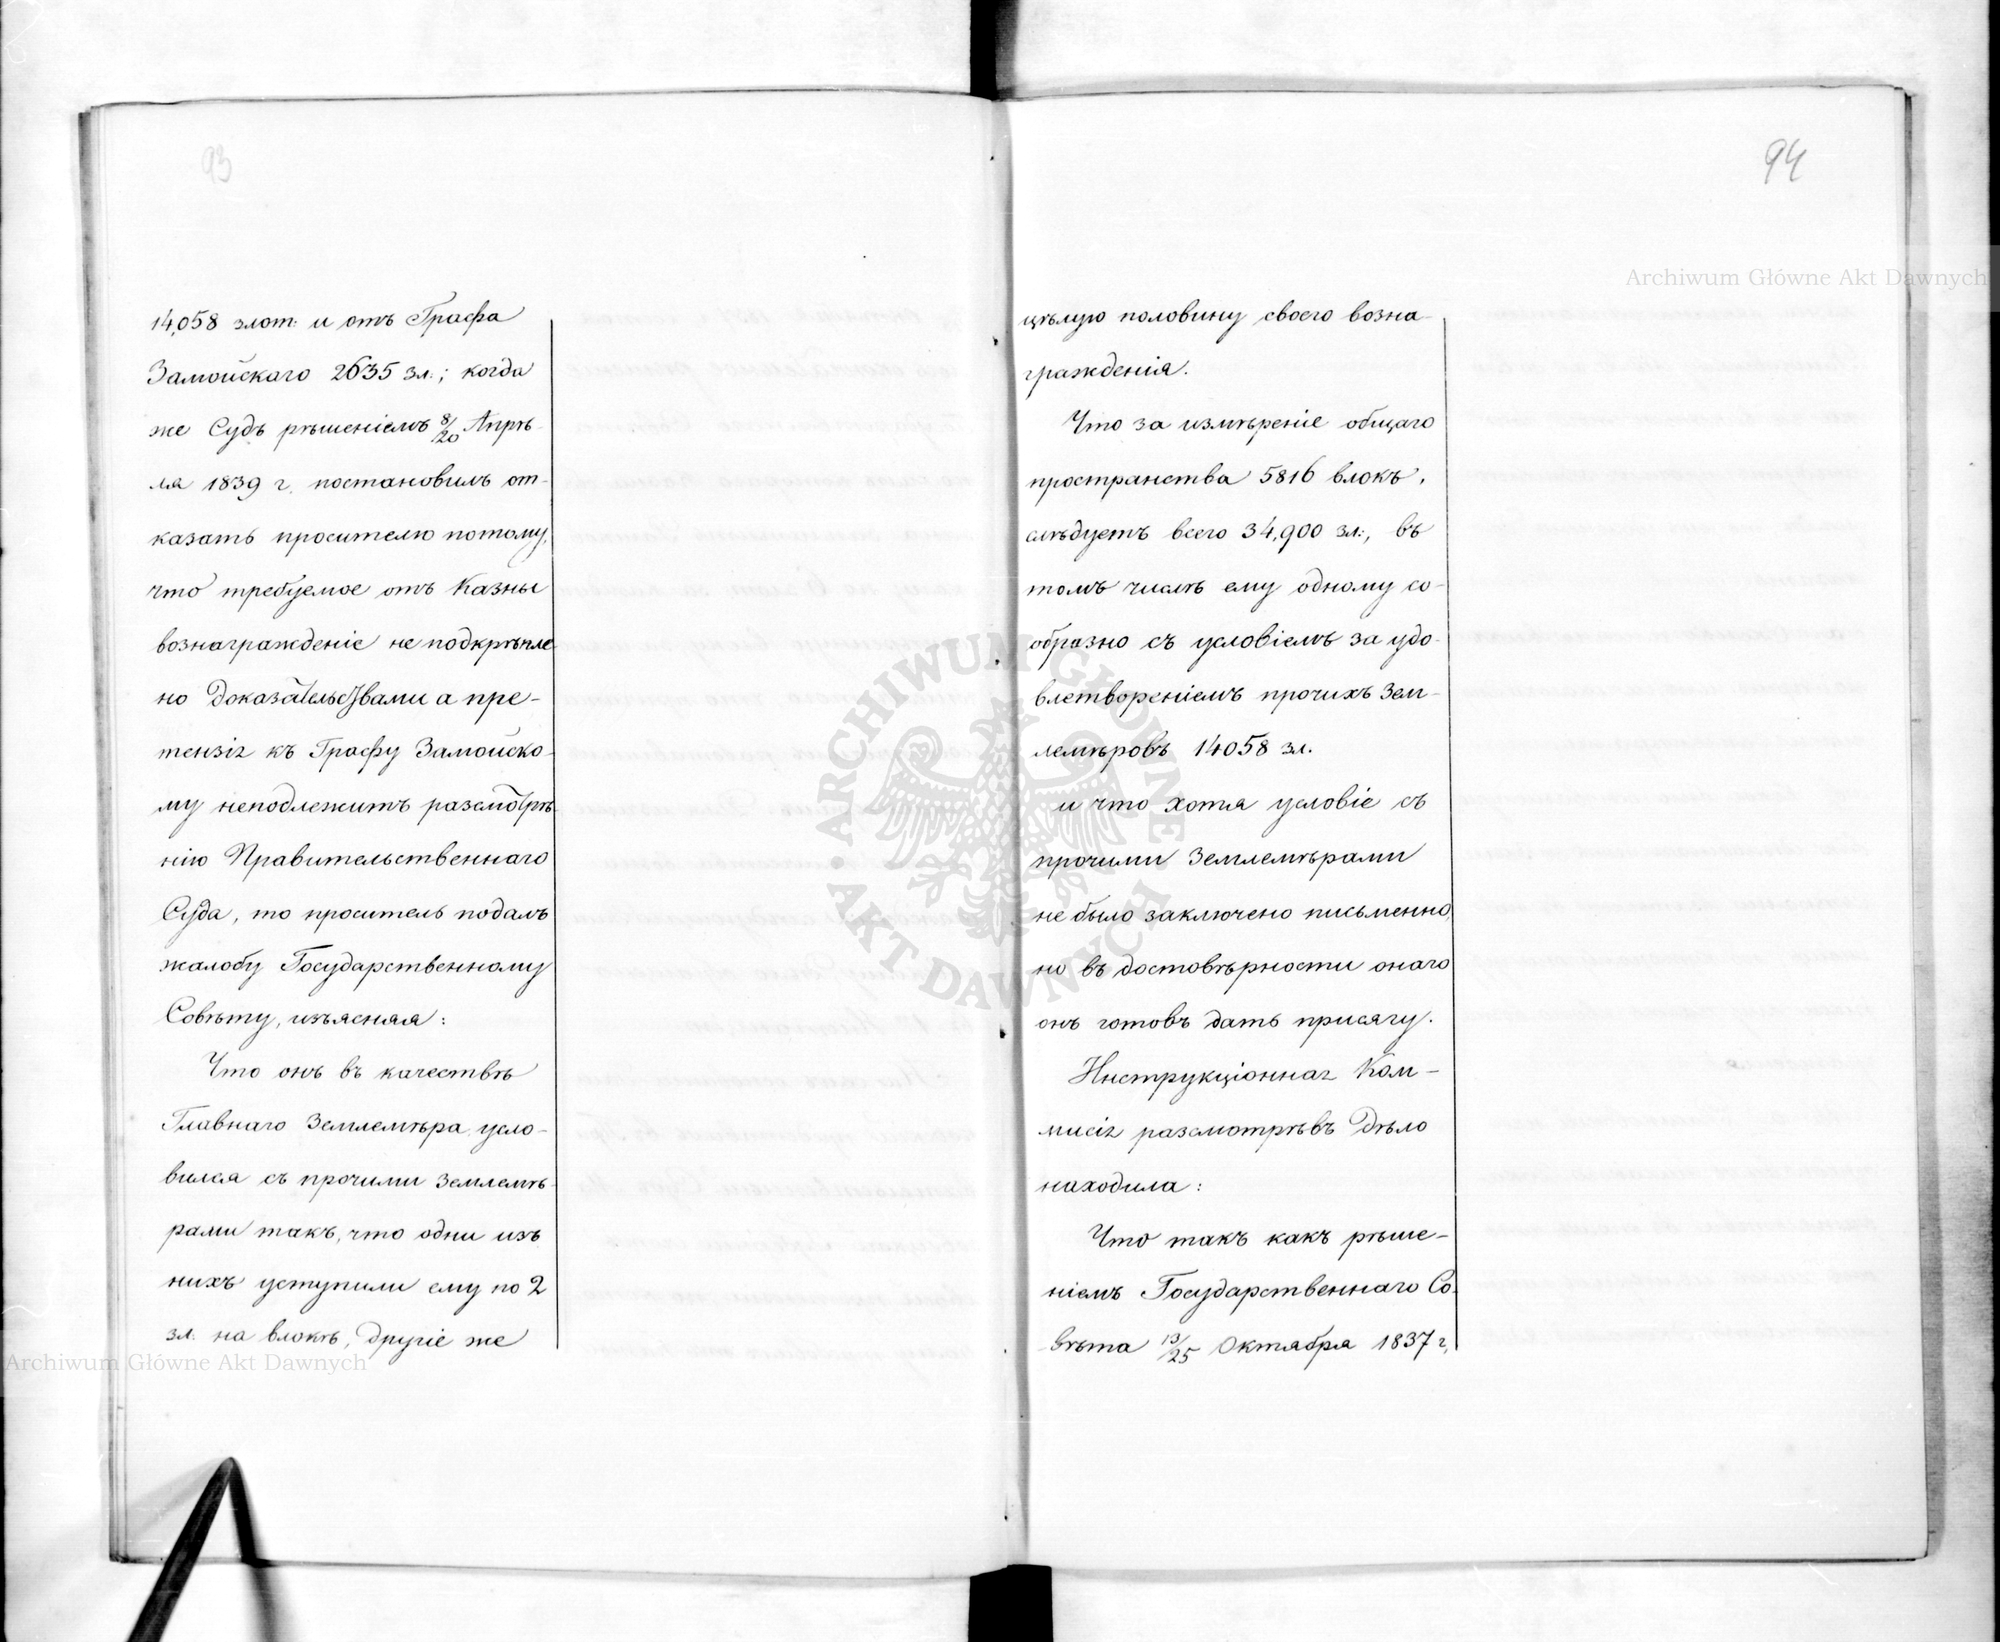 93
14,058 злот: и отъ Графа
Замойскаго 2635 зл.; когда
же Судъ рѣшеніемъ 8/20 Апрѣ-
ля 1839 г. постановилъ от-
казать просителю потому,
что требуемое отъ Казны
вознагражденіе не подкрѣпле
но доказательствами а пре-
тензія къ Графу Замойско-
му неподлежитъ разсмотрѣ-
нію Правительственнаго
Суда, то проситель подалъ
жалобу Государственному
Совѣту, изъясняя:
Что онъ въ качествѣ
Главнаго Землемѣра усло-
вился съ прочими землемѣ-
рами такъ, что одни изъ
нихъ уступили ему по 2
зл. на влокѣ, другіе же
94
цѣлую половину своего возна-
гражденія.
Что за измѣреніе общаго
пространства 5816 влокъ,
слѣдуетъ всего 34,900 зл:, въ
томъ числѣ ему одному со-
образно съ условіемъ за удо-
влетвореніемъ прочихъ Зем-
лемѣровъ 14058 зл.
и что хотя условіе съ
прочими Землемѣрами
не было заключено письменно,
но въ достовѣрности онаго
онъ готовъ дать присягу.
Инструкціонная Ком-
мисія разсмотрѣвъ дѣло
находила:
Что такъ какъ рѣше-
ніемъ Государственнаго Со-
вѣта 13/25 Октября 1837 г.
Archiwum Główne Akt Dawnych
ARCHIWUM GŁÓWNE AKT DAWNYCH
Archiwum Główne Akt Dawnych